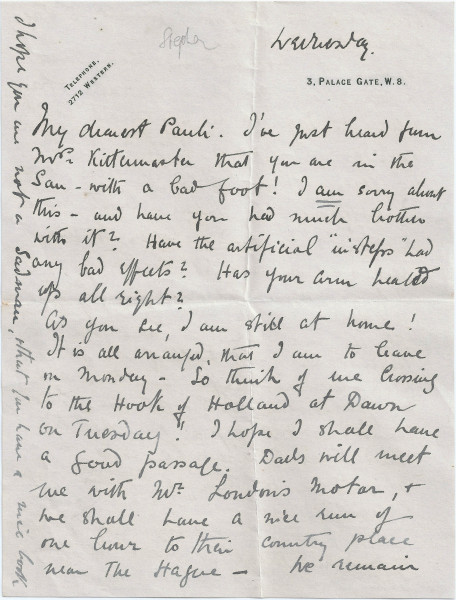 Stephen
Wednesday.
TELEPHONE,
2712 WESTERN.
3, PALACE GATE, W. 8.
My dearest Pauli. I've just heard from
Mrs Kittermaster that you are in the
San - with a bad foot! I am sorry about
this - and have you had much bother
with it? Have the artificial "insteps" had
any bad effects? Has your arm healed
up all right?
As you see, I am still at home!
It is all arranged, that I am to leave
on Monday - So think of me Crossing
to the Hook of Holland at Dawn
on Tuesday! I hope I shall have
a good passage. Dads will meet
me with Mr London's Motar, &
we shall have a nice run of
one hour to their country place
near the Hague - We remain
I hope you are not a Sadman, that you have a nice book